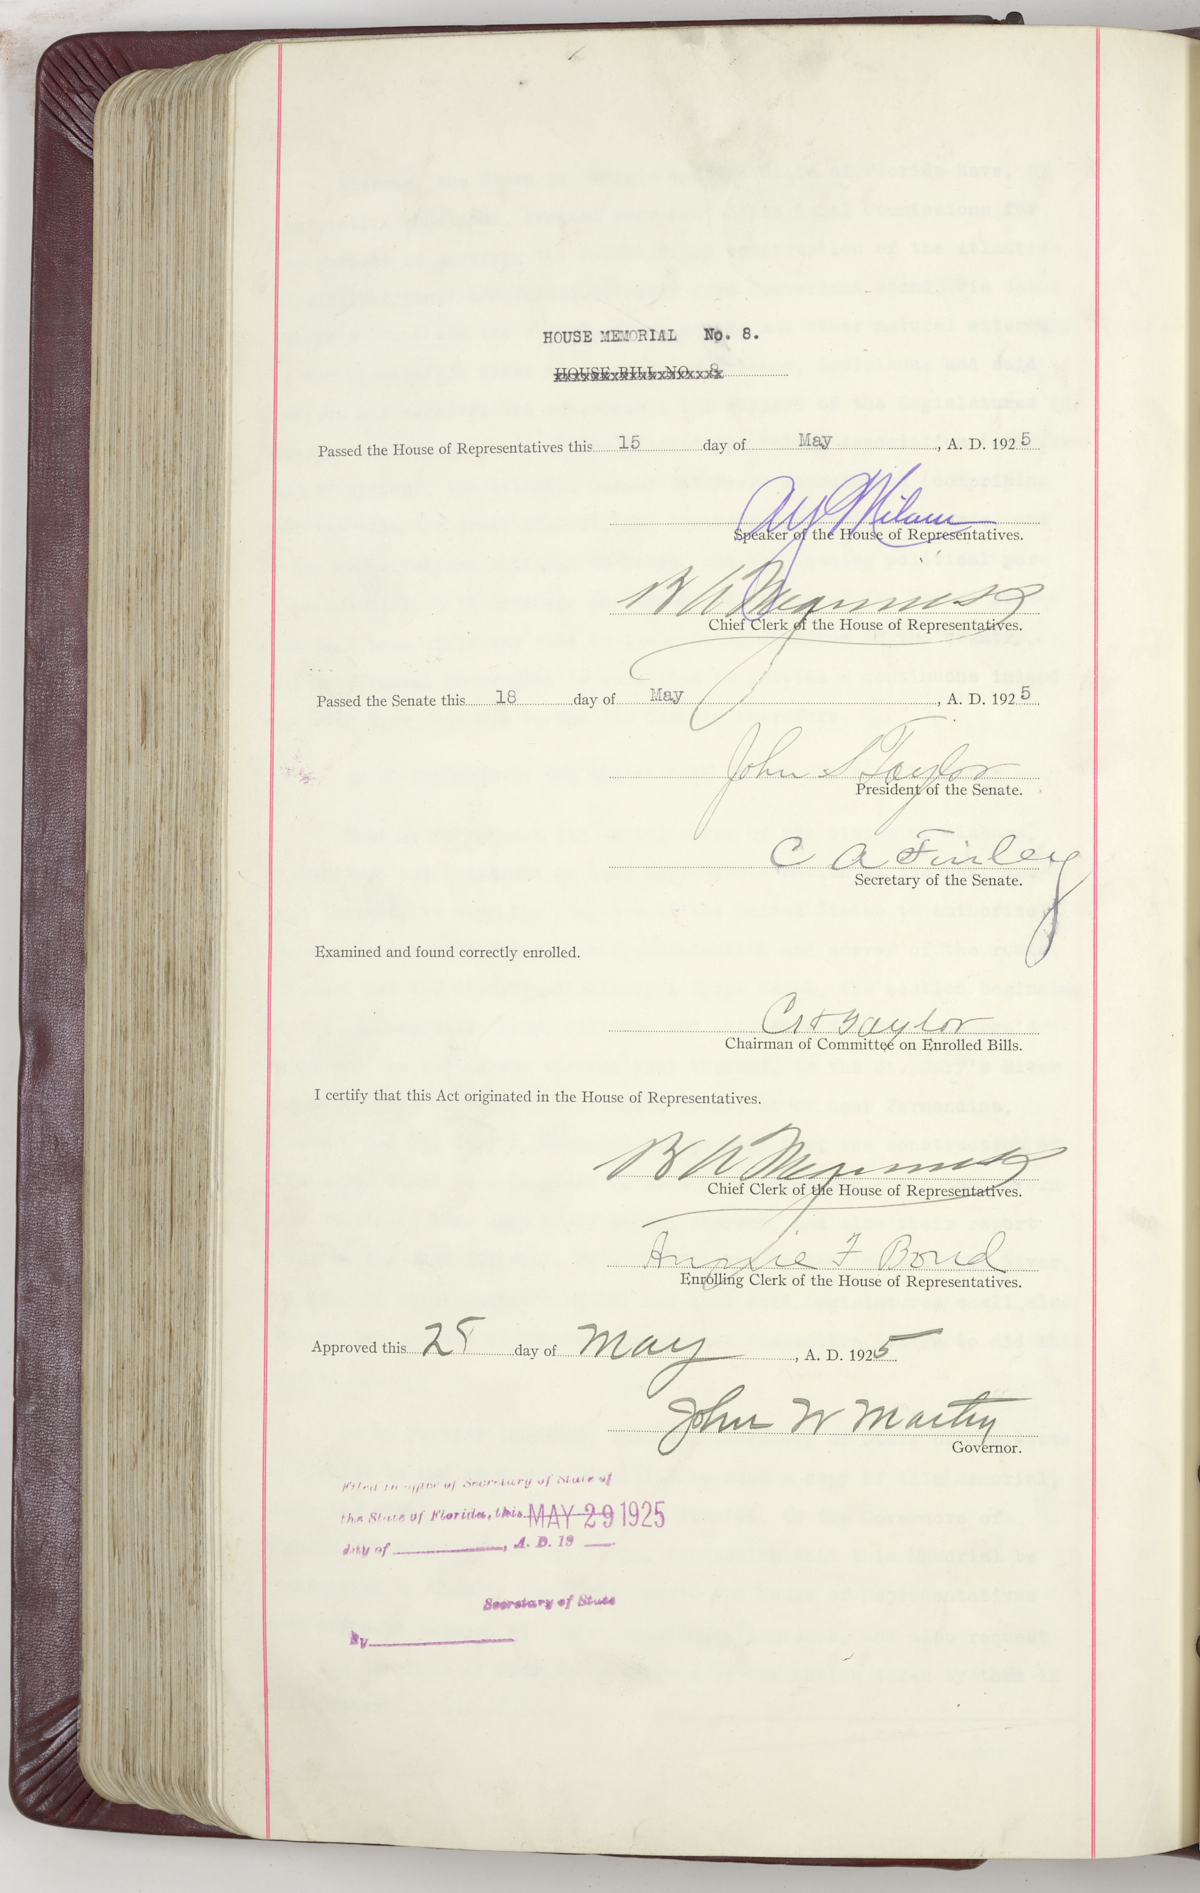 HOUSE MEMORIAL No. 8.
HOUSE BILL NO. 8
Passed the House of Representatives this 15 day of May, A. D. 1925
A Y Milam
Speaker of the House of Representatives.
B A
Chief Clerk of the House of Representatives.
Passed the Senate this 18 day of May, A. D. 1925
John S Taylor
President of the Senate.
C A Finley
Secretary of the Senate.
Examined and found correctly enrolled.
Taylor
Chairman of Committee on Enrolled Bills.
I certify that this Act originated in the House of Representatives.
B A
Chief Clerk of the House of Representatives.
F Bond
Enrolling Clerk of the House of Representatives.
Approved this 25 day of May, A. D. 1925
John W Martin
Governor.
Filed in office of Secretary of State of
the State of Florida, this MAY 29 1925
day of , A. D. 19
Secretary of State
By